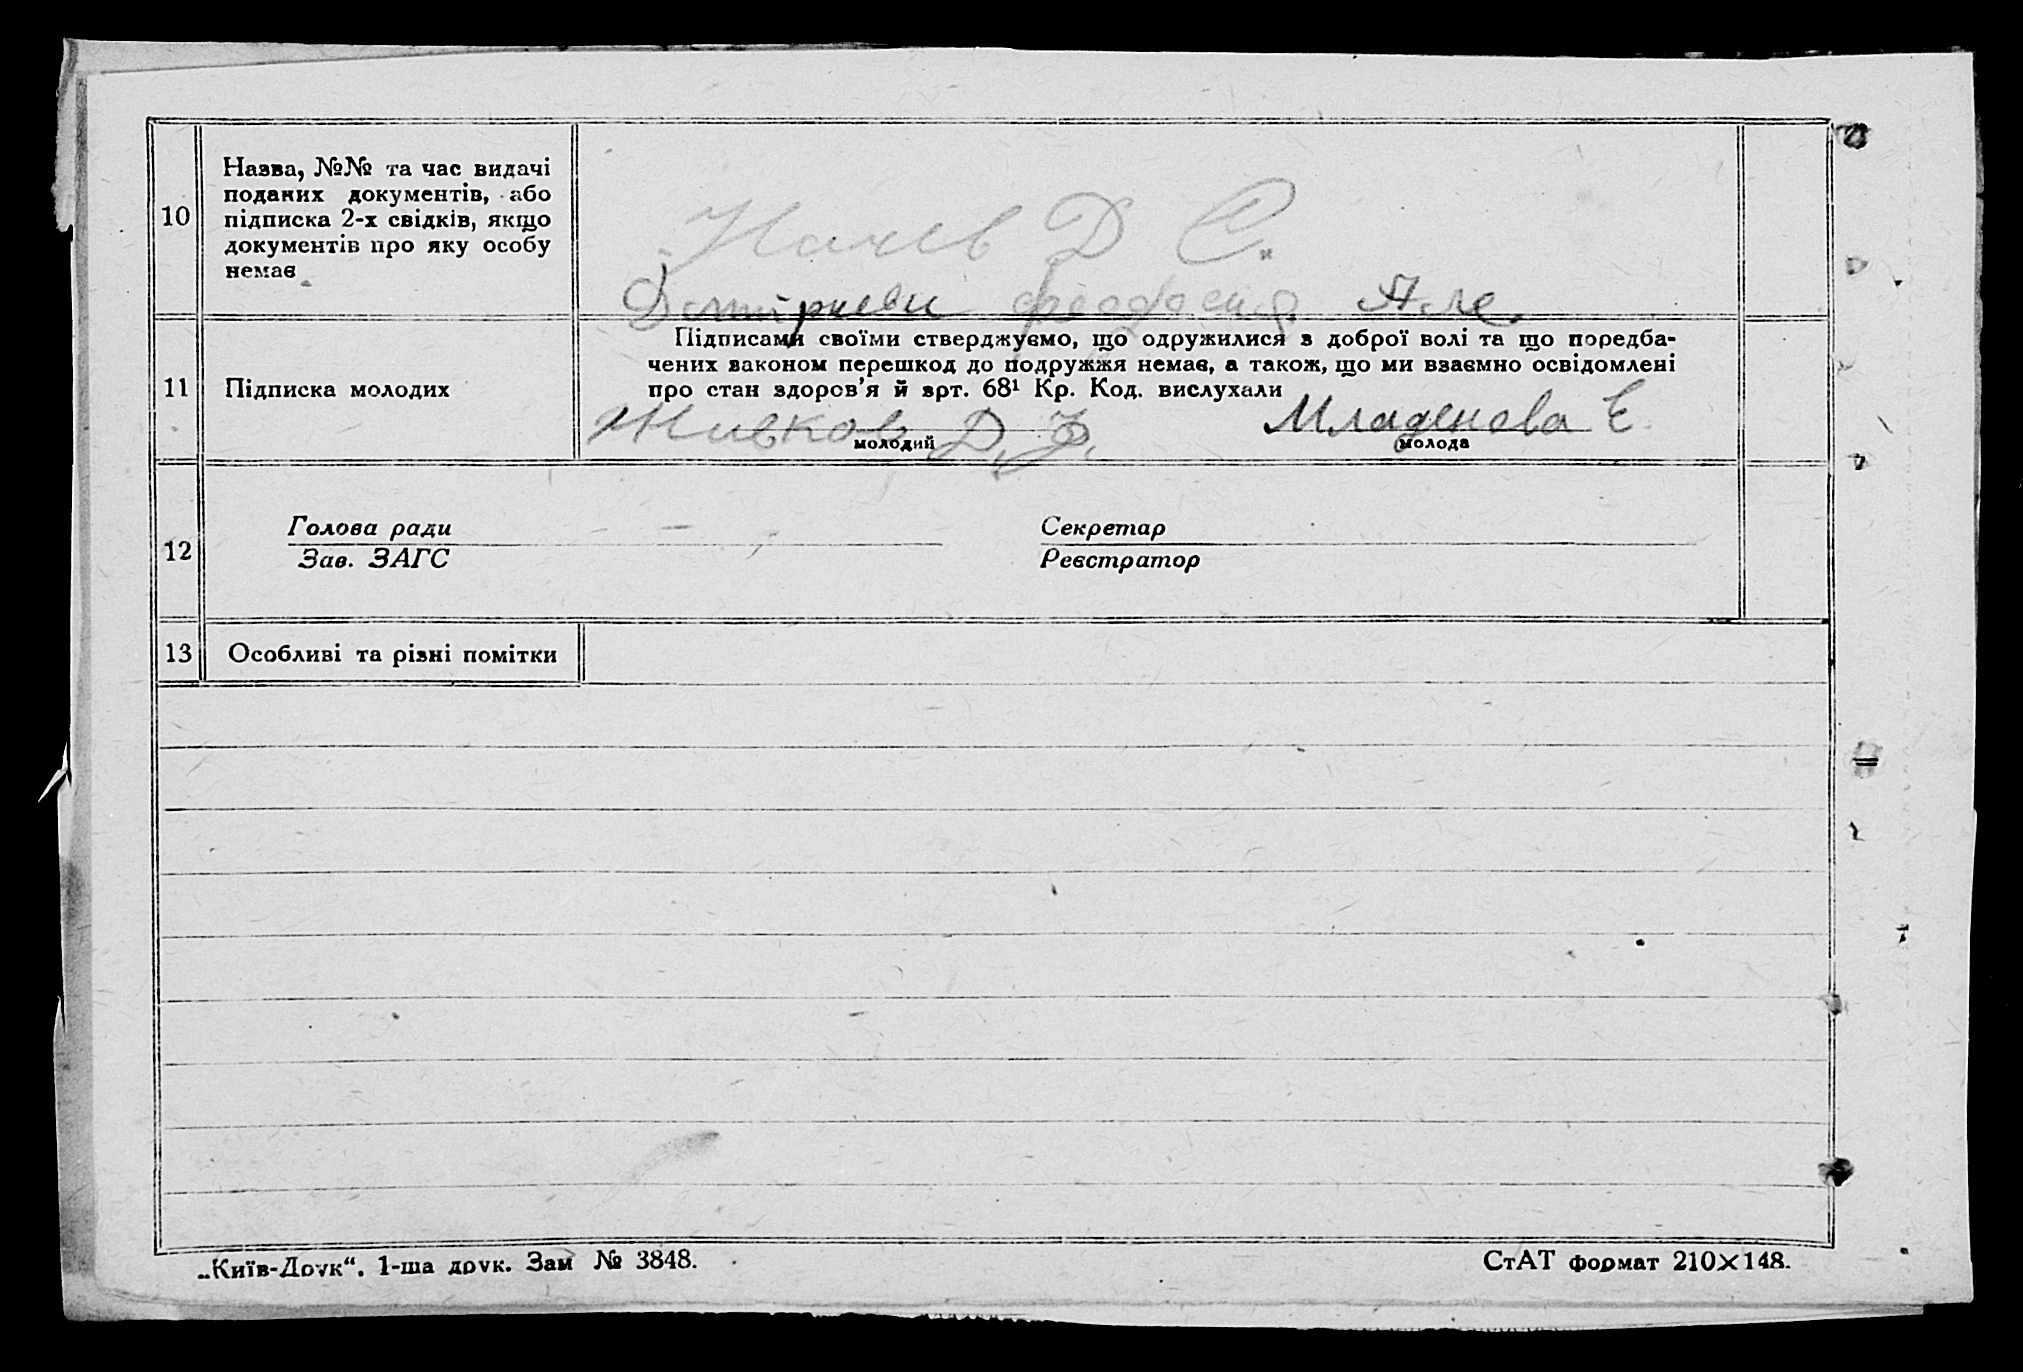 10
Назва, №№ та час видачі
поданих документів, або
підписка 2-х свідків, якщо
документів про яку особу
немає
Начев Д С.
11
Підписка молодих
Підписами своїми стверджуємо, що одружилися з доброї волі та що поредба-
чених законом перешкод до подружжя немає, а також, що ми взаємно освідомлені
про стан здоров’я й арт. 68¹ Кр. Код. вислухали
Живков Д. Ф.
Младенова Е.
молодий
молода
12
Голова ради
Секретар
Зав. ЗАГС
Реєстратор
13
Особливі та різні помітки
„Київ-Друк“. 1-ша друк. Зам № 3848.
СтАТ формат 210×148.